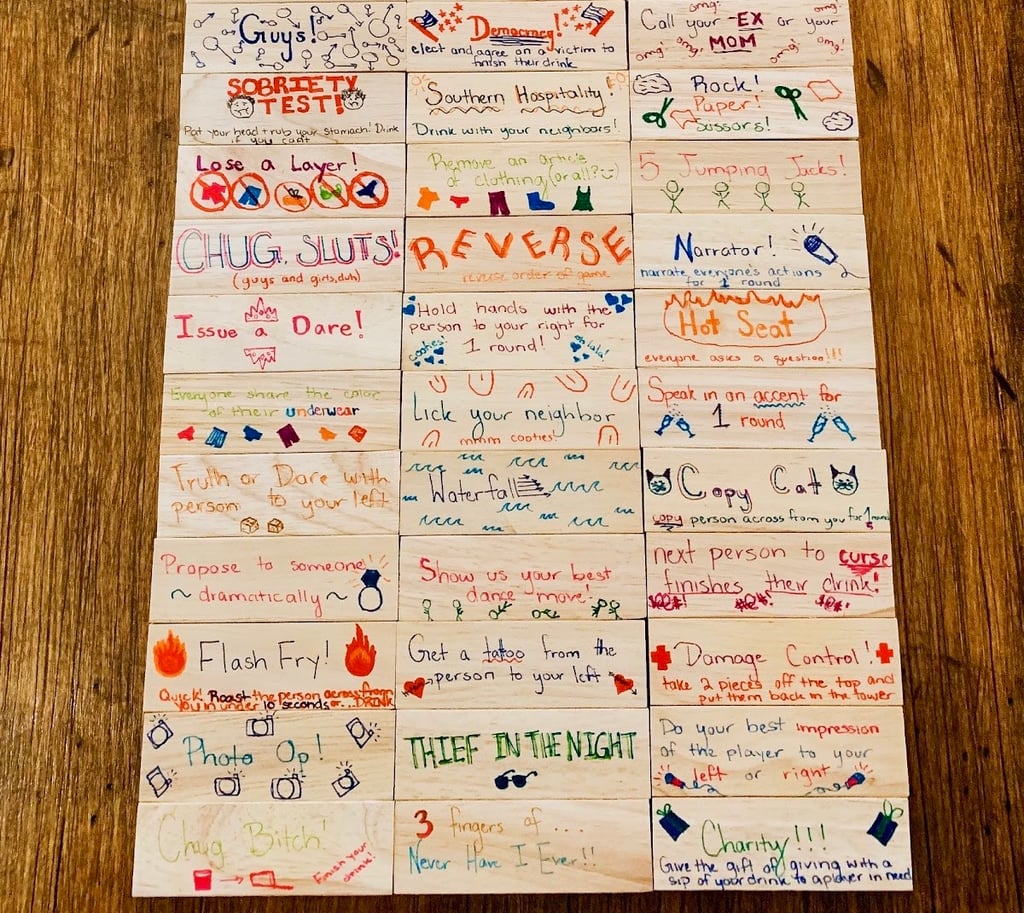 Guys!
Democracy!
elect and agree on a victim to
finish their drink
Call your EX or your
MOM
omg! omg! omg! omg! omg! omg!
SOBRIETY
TEST!
Pat your head + rub your stomach! Drink
if you can't
Southern Hospitality
Drink with your neighbors!
Rock!
Paper!
Scissors!
Lose a Layer!
Remove an article
of clothing (or all?:)
5 Jumping Jacks!
CHUG, SLUTS!
(guys and girls, duh)
REVERSE
reverse order of game
Narrator!
narrate everyone's actions
for 1 round
Issue a Dare!
Hold hands with the
person to your right for
1 round!
cooties! oh lala!
Hot Seat
everyone asks a question!!!
Everyone share the color
of their underwear
Lick your neighbor
mmm cooties!
Speak in an accent for
1 round
Truth or Dare with
person to your left
Waterfall
Copy Cat
copy person across from you for 1 round
Propose to someone
~ dramatically ~
Show us your best
dance move!
next person to curse
finishes their drink!
Flash Fry!
Quick! Roast the person across from
you in under 10 seconds or... DRINK
Get a tattoo from the
person to your left
Damage Control!
take 2 pieces off the top and
put them back in the tower
Photo Op!
THIEF IN THE NIGHT
Do your best impression
of the player to your
left or right
Chug Bitch!
Finish your
drink!
3 fingers of ....
Never Have I Ever!!
Charity!!!
Give the gift of giving with a
sip of your drink to a player in need